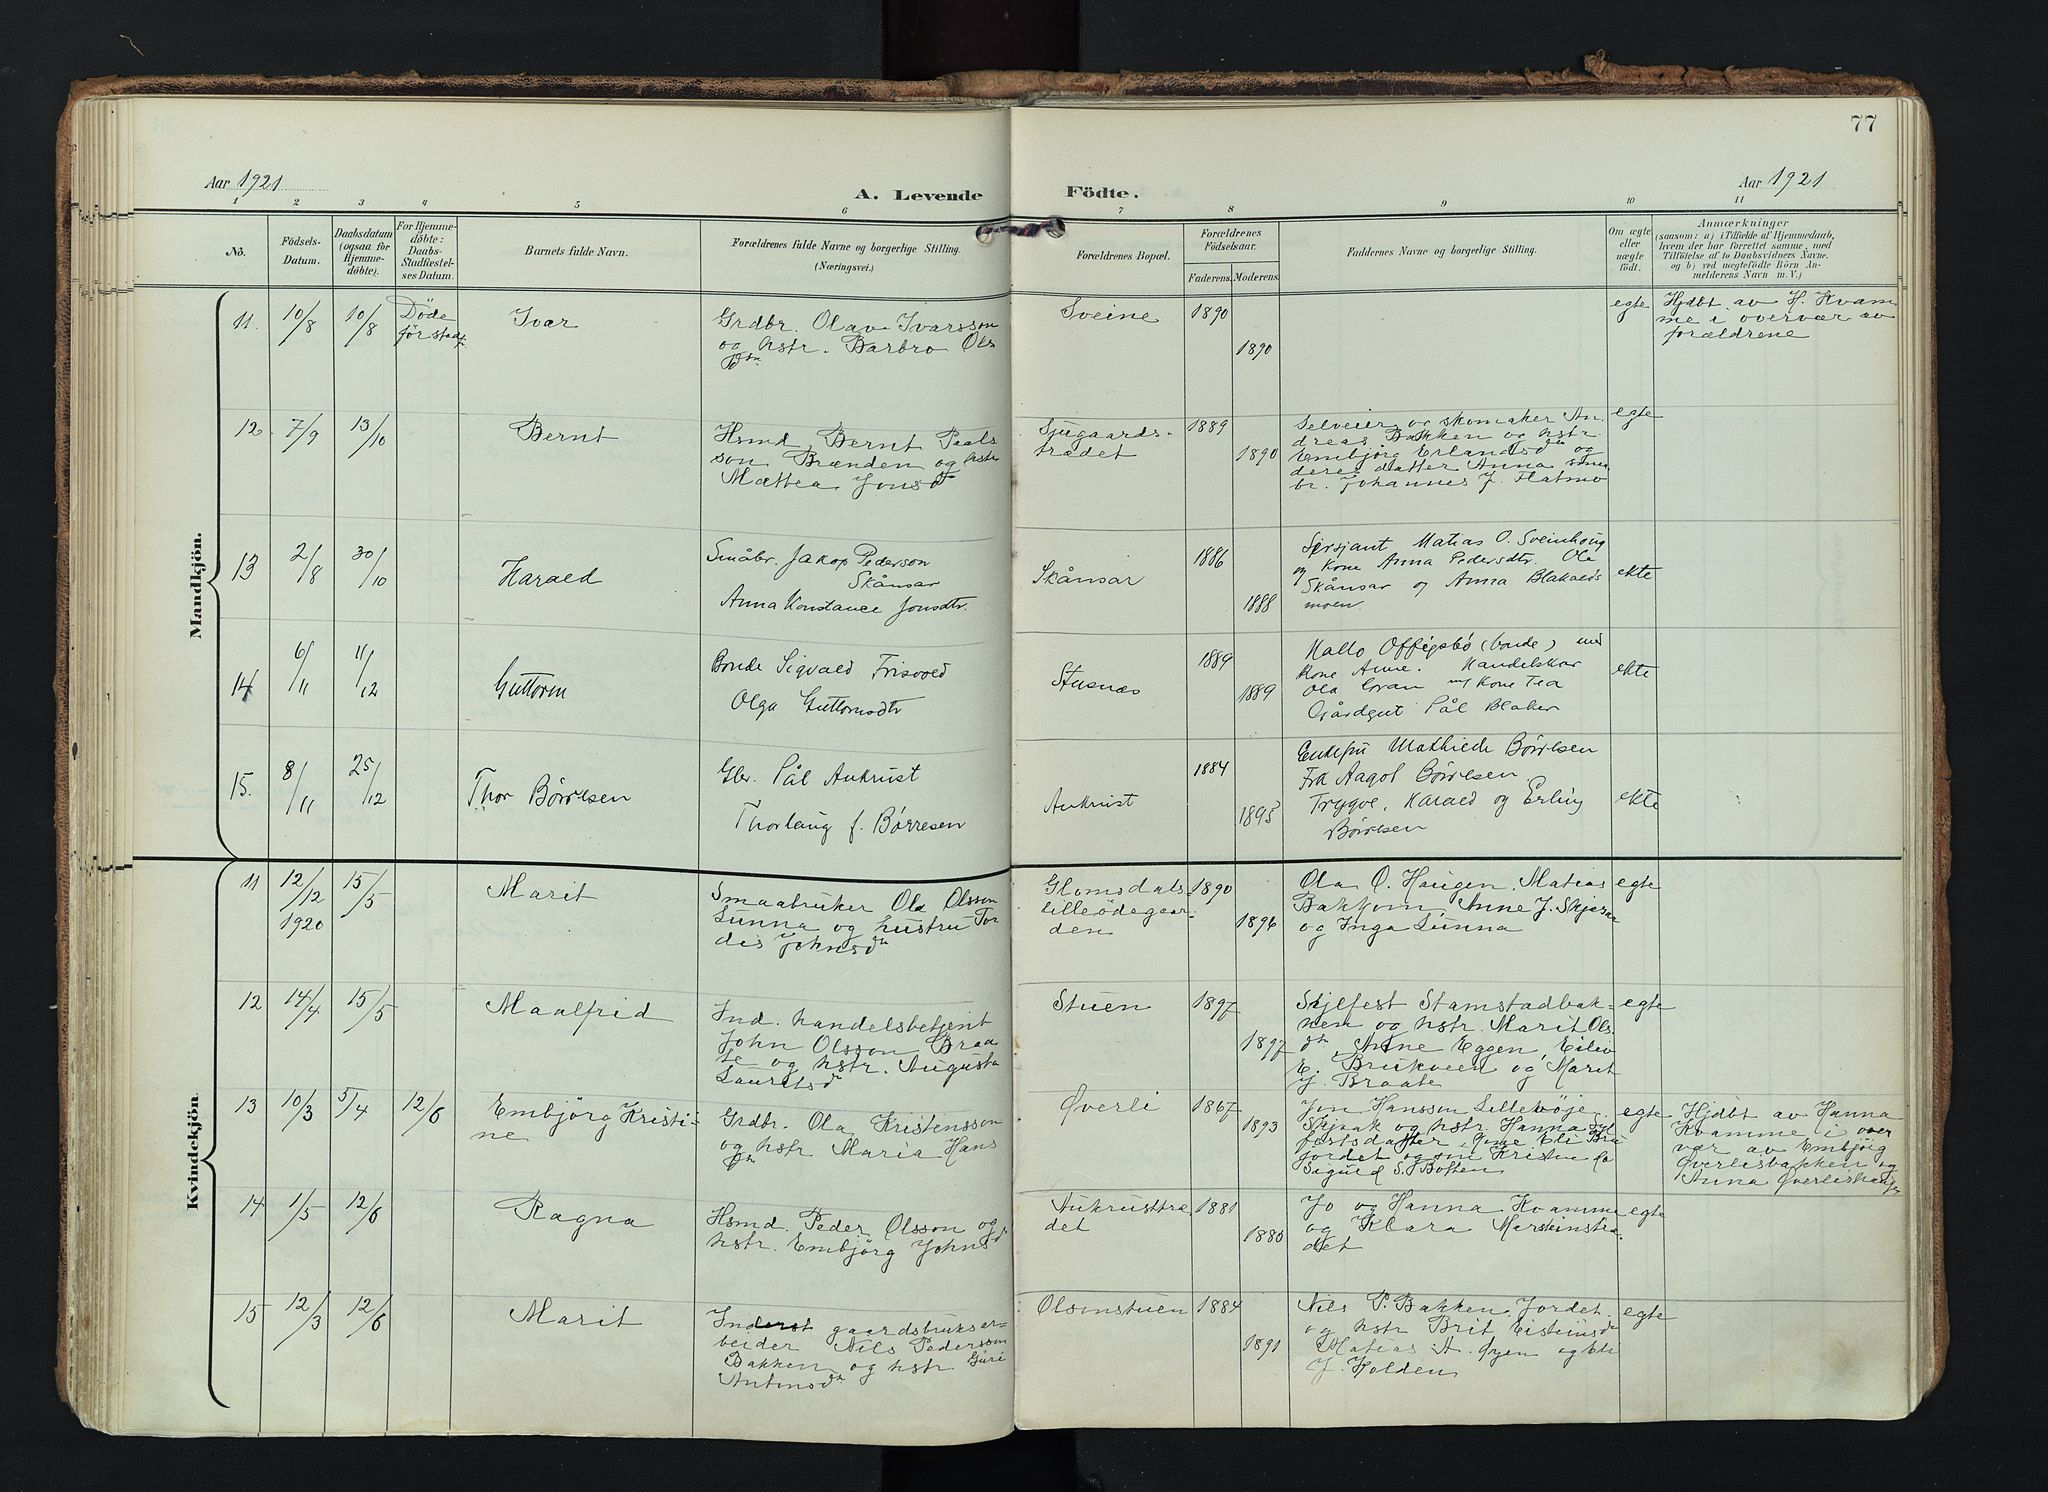 77
Aar 1921
A. Levende
Födte.
Aar 1921
1 2 3 4 5 6 7 8 9 10 11
No.
Födsels-
Datum.
Daabsdatum
(ogsaa for
Hjemme-
döbte).
For Hjemme-
döbte:
Daabs-
Stadfæstel-
ses Datum.
Barnets fulde Navn.
Forældrenes fulde Navne og borgerlige Stilling.
(Næringsvei.)
Forældrenes Bopæl.
Forældrenes
Födselsaar.
Faderens.
Moderens.
Faddernes Navne og borgerlige Stilling.
Om ægte
eller
uægte
födt.
Anmærkninger
(saasom: a) i Tilfælde af Hjemmedaab,
hvem der har forrettet samme, med
Tilföielse af to Daabsvidners Navne.
og b) ved uægtefödte Börn An-
melderens Navn m. V.)
Mandkjön.
11. 10/8 10/8 Döde
för stadf.
Ivar
Grdbr. Olav Ivarsson
og hstr. Barbro Ols
dtr
Sveine
1890
1890
egte
Hjdbt av H. Kvam
me i overvær av
forældrene
12. 7/9 13/10
Bernt
Hsmd. Bernt Paals
son Brænden og hstr
Mattea Jonsdtr
Sjugaards-
trædet
1889
1890
Selveier og skomaker An
dreas Bakken og hstr.
Embjörg Erlandsdtr og
deres datter Anna
br. Johannes J. Flatmo
egte
13 2/8 30/10
Harald
Småbr. Jakop Pederson
Skånsar
Anna Konstance Jonsdtr.
Skånsar
1886
1888
Sersjant Matias O. Sveinhoug
og kone Anna Pedersdtr. Ole
Skånsar og Anna Blakaeds
moen.
ekte
14 6/11 11/12
Guttorm
Bonde Sigvald Frisvold
Olga Guttormsdtr
Stusnæs
1889
1889
Kallo Offigsbø (bonde) med
Kone Anne. Handelskar
Ola Gran m/ Kone Tea
Gårdgut Pål Blaker
ekte
15. 8/11 25/12
Thor Börresen
Gbr. Pål Aukrust
Thorlaug f. Börresen
Aukrust
1884
1895
Enkefru Mathilde Börresen
Fra Aagot Börresen
Trygve, Harald og Erling
Börresen
ekte
Kvindekjön.
11 12/12
1920
15/5
Marit
Smaabruker Ola Olsson
Lunna og hustru Tor
dis Johnsdtr
Glomsdals-
lilleødegaar-
den
1890
1896
Ola O. Haugen, Matias
Bakkom, Anne J. Skjaar
og Inga Lunna
egte
12 14/4 15/5
Maalfrid
Ind. handelsbetjent
John Olsson Braa-
te og hstr. Augusta
Lauritsdtr
Stuen
1897
1897
Skjelfest Stamstadbak-
ken og hstr. Marit Ols
dtr, Anne Eggen, Eiliv
E. Brukveen og Marit
J. Braate
egte
13 10/3 5/4 12/6
Embjörg Kristi-
ne
Grdbr. Ola Kristensson
og hstr. Maria Hans
dtr
Øverli
1867
1893
Jon Hansson Lillehøje
Skjaak og hstr. Hanna Syl
festsdatter, Eli Bru
jordet og søn Kristen
Sigurd S. Boften
egte
Hjdbt av Hanna
Kvamme i over
vær av Embjörg
Øverlisbakken og
Anna Øverlishaugen
14 1/5 12/6
Ragna
Hsmd. Peder Olsson og
hstr. Embjörg Johnsdtr
Aukrusttræ
det
1881
1880
Jo og Hanna Kvamme
og Klara Marsteinstræ
det
egte
15 12/3 12/6
Marit
Inderst gaardsbruksar-
beider Nils Pedersson
Bakken og hstr Guri
Antonsdtr
Olsenstuen
1884
1891
Nils P. Bakken, Jordet
og hstr Brit Eisteinsdtr
Matias A. Øyen og Eli
J. Holden
egte